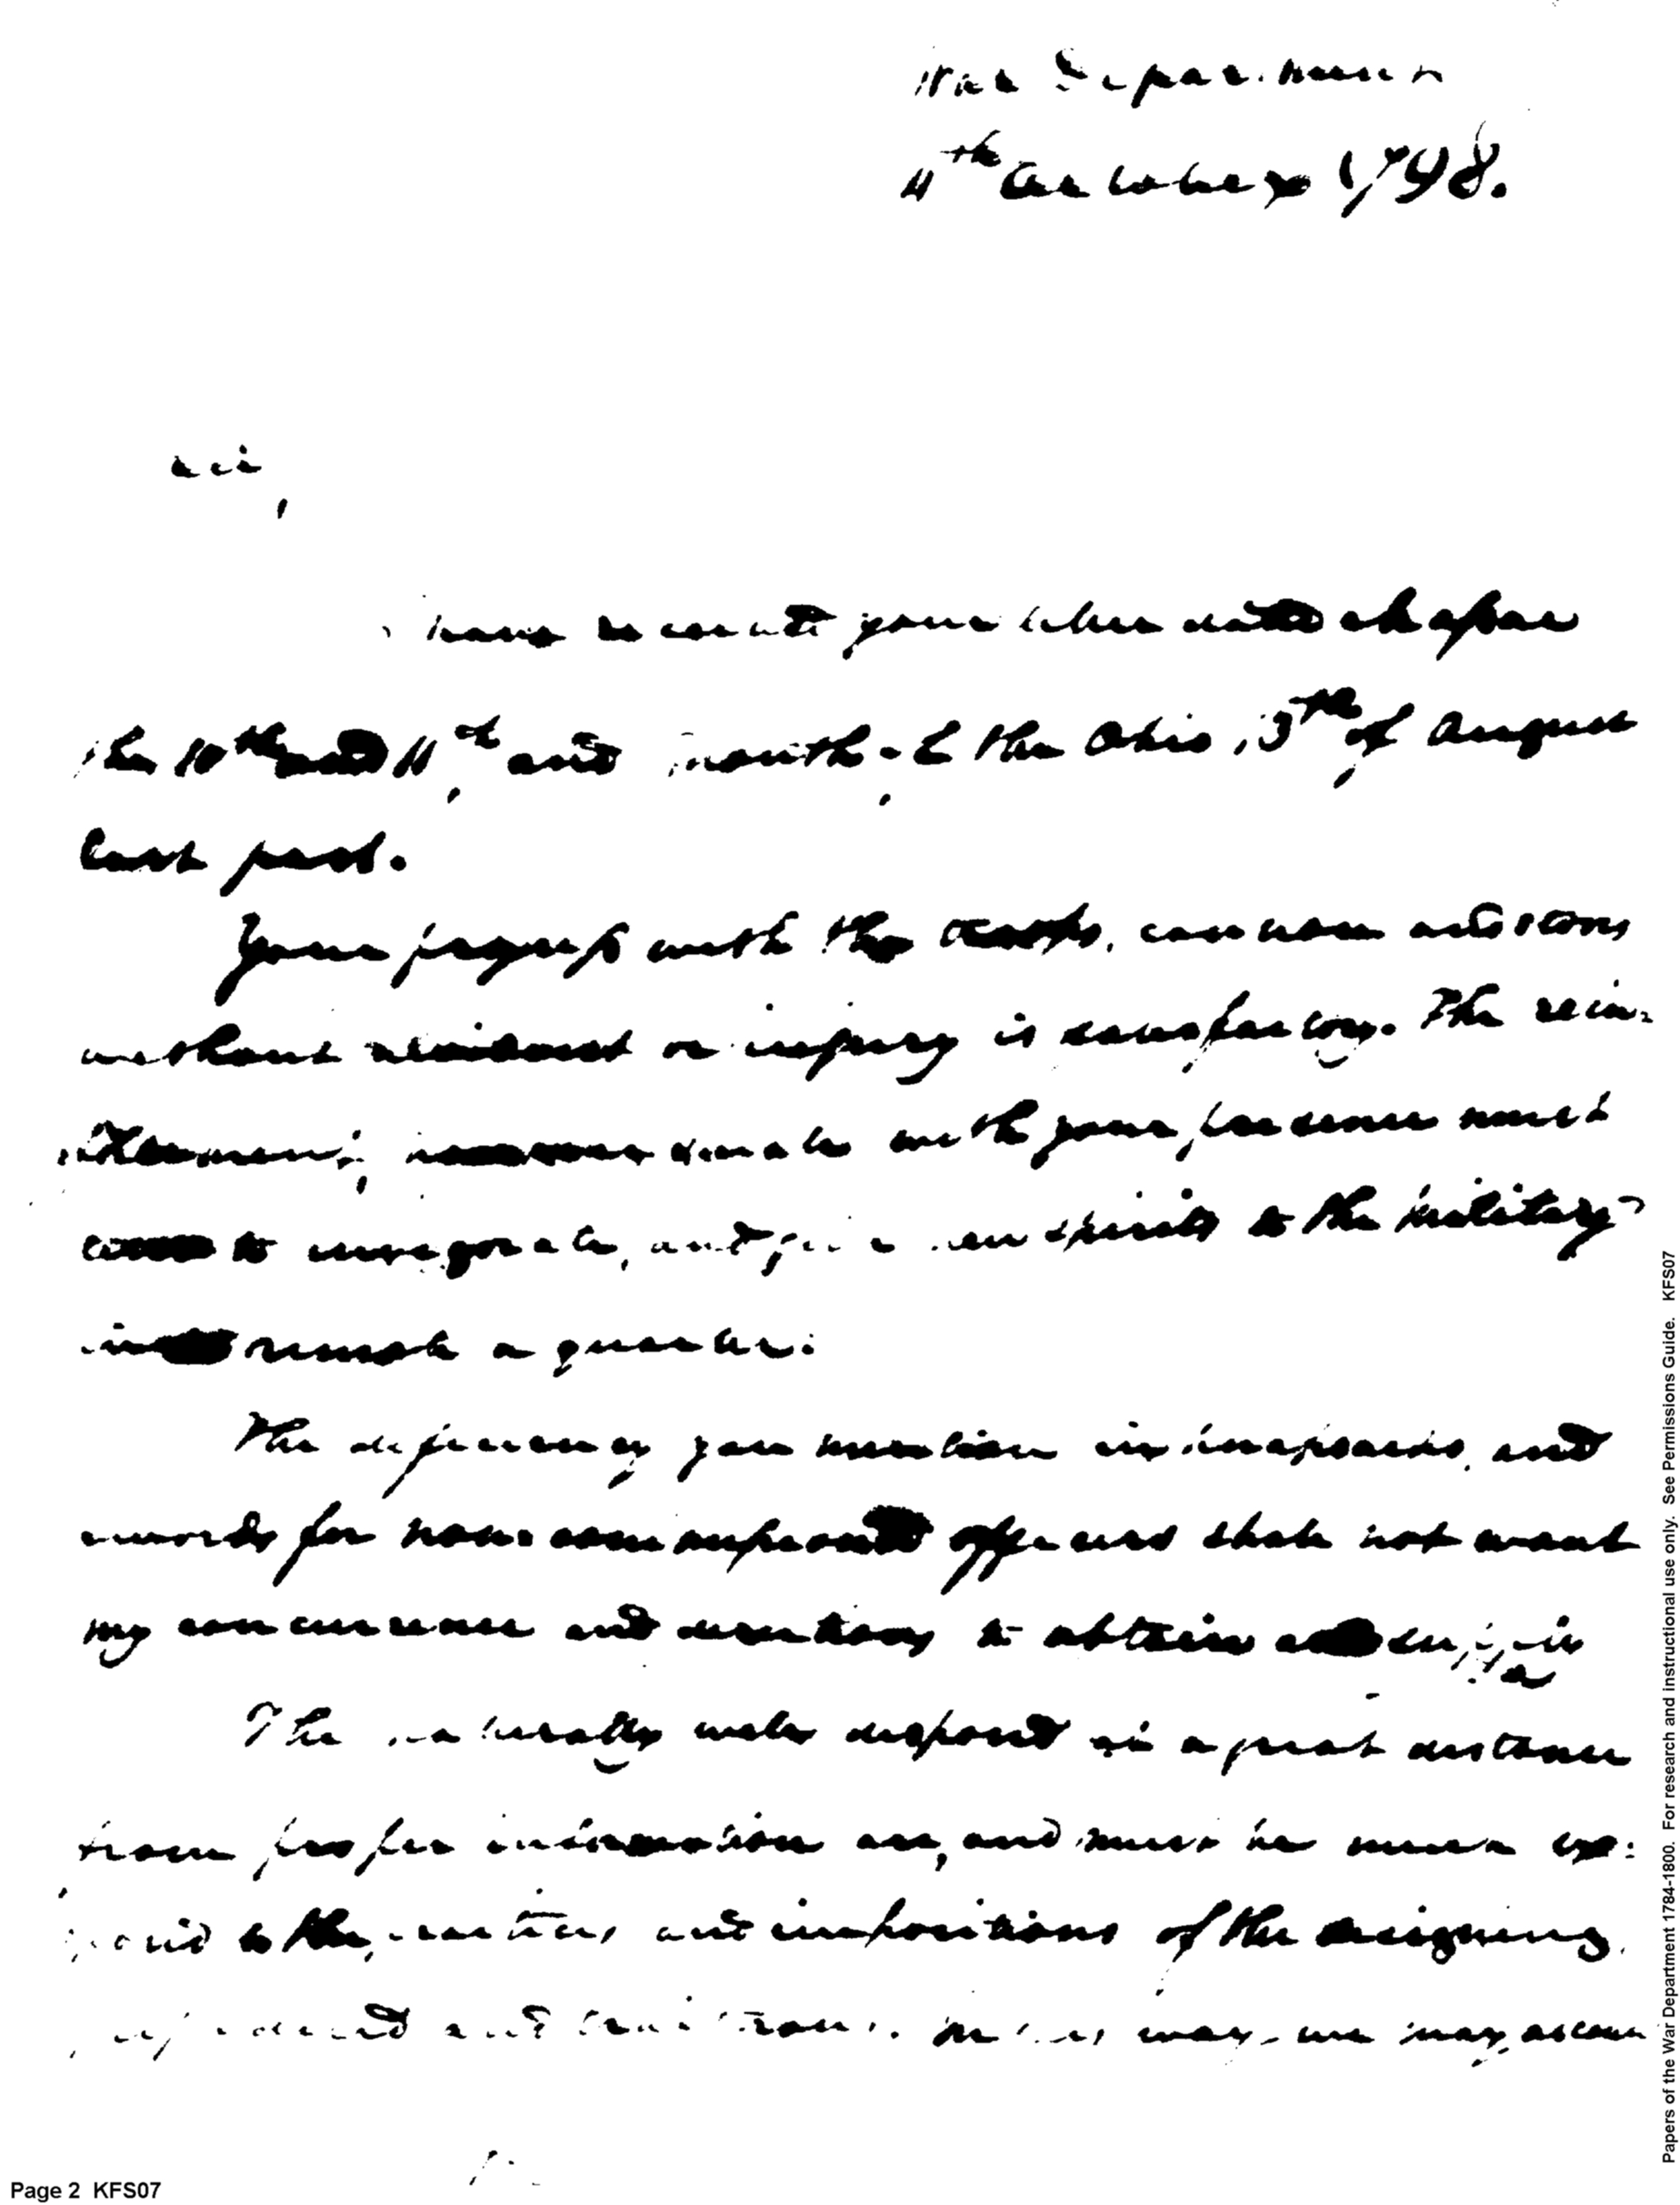 War Department
11th October 1798.
Sir,
I have received your letter dated
the 10th and 11th and mouth of the Ohio 13th of August
last past.
Your progress with the troops, cannon and stores
without accident or injury is satisfactory. The rein-
with your presence must
to invigorate, and give new spirits to the military
in remote a quarter.
The deficiency you mention in and
swords for non-commissioned officers shall not want
my concurrence and exertions to obtain
The naturally well disposed at a great distance
from proper information are, and must be much ex:
posed to the and impositions of the designing,
and traitorous. In this way, we may account
Page 2 KFS07
Papers of the War Department 1784-1800. For research and instructional use only. See Permissions Guide. KFS07